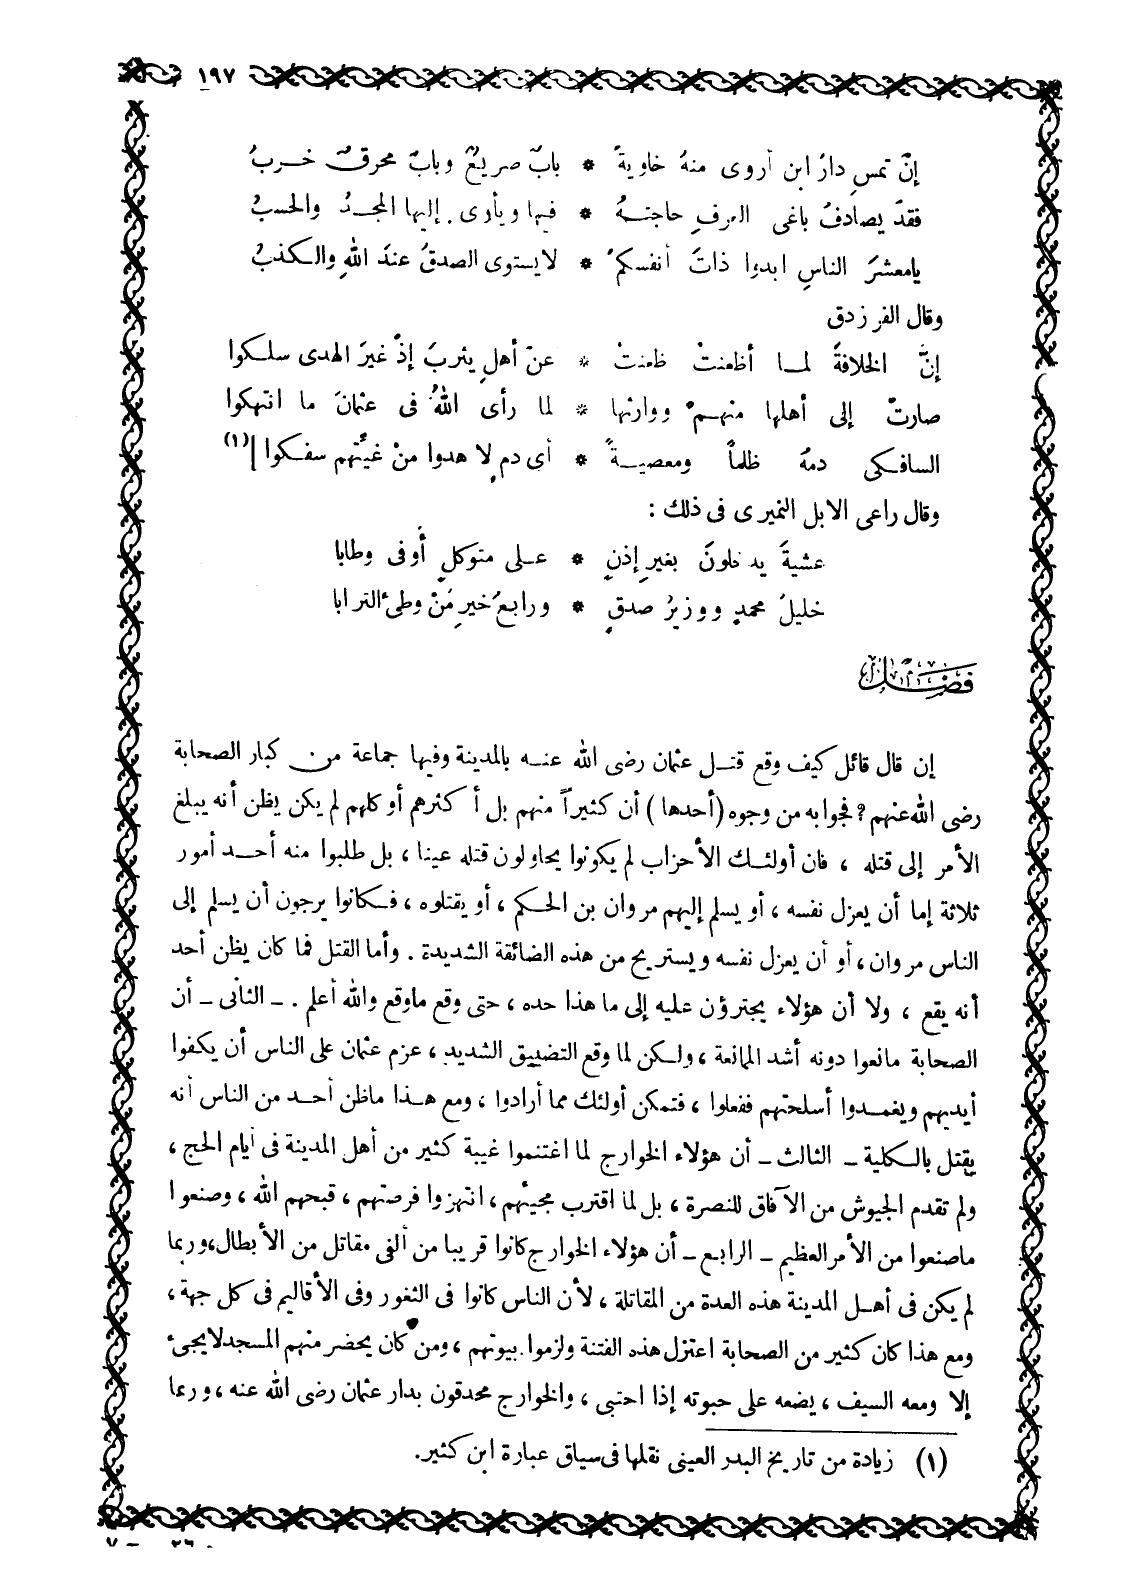 ١٩٧
إنّ تمسِ دارُ ابن أروى منهُ خاويةً * بابٌ صريعٌ وبابٌ محرقٌ خربُ
فقدْ يصادفُ باغى العرفِ حاجتهُ * فيها ويأوى إليها المجدُ والحسبُ
يامعشرَ الناسِ ابدوا ذاتَ أنفسكمْ * لايستوى الصدقُ عندَ اللهِ والكذبُ
وقال الفرزدق
إنَّ الخلافةَ لما أظعنتْ ظعنتْ * عنْ أهلِ يثربَ إذْ غيرَ الهدى سلكوا
صارتْ إلى أهلها منهمْ ووارثها * لما رأى اللهُ فى عثمانَ ما انتهكوا
السافكى دمهُ ظلماً ومعصيةً * أى دمٍ لا هدوا منْ غيّهم سفكوا ] (١)
وقال راعى الابل النميرى فى ذلك :
عشيةَ يدخلونَ بغيرِ إذنٍ * على متوكلٍ أوفى وطابا
خليلُ محمدٍ ووزيرُ صدقٍ * ورابعُ خيرِ مَنْ وطئ الترابا
فصل
إن قال قائل كيف وقع قتل عثمان رضى الله عنه بالمدينة وفيها جماعة من كبار الصحابة
رضى الله عنهم ؟ فجوابه من وجوه (أحدها) أن كثيراً منهم بل أكثرهم أو كلهم لم يكن يظن أنه يبلغ
الأمر إلى قتله ، فان أولئك الأحزاب لم يكونوا يحاولون قتله عينا ، بل طلبوا منه أحد أمور
ثلاثة إما أن يعزل نفسه ، أو يسلم إليهم مروان بن الحكم ، أو يقتلوه ، فكانوا يرجون أن يسلم إلى
الناس مروان ، أو أن يعزل نفسه ويستريح من هذه الضائقة الشديدة . وأما القتل فما كان يظن أحد
أنه يقع ، ولا أن هؤلاء يجترؤن عليه إلى ما هذا حده ، حتى وقع ماوقع والله أعلم . ـ الثانى ـ أن
الصحابة مانعوا دونه أشد الممانعة ، ولكن لما وقع التضييق الشديد ، عزم عثمان على الناس أن يكفوا
أيديهم ويغمدوا أسلحتهم ففعلوا ، فتمكن أولئك مما أرادوا ، ومع هذا ماظن أحد من الناس أنه
يقتل بالكلية ـ الثالث ـ أن هؤلاء الخوارج لما اغتنموا غيبة كثير من أهل المدينة فى أيام الحج ،
ولم تقدم الجيوش من الآفاق للنصرة ، بل لما اقترب مجيئهم ، انتهزوا فرصتهم ، قبحهم الله ، وصنعوا
ماصنعوا من الأمر العظيم ـ الرابع ـ أن هؤلاء الخوارج كانوا قريبا من ألفى مقاتل من الأبطال، وربما
لم يكن فى أهل المدينة هذه العدة من المقاتلة ، لأن الناس كانوا فى الثغور وفى الأقاليم فى كل جهة ،
ومع هذا كان كثير من الصحابة اعتزل هذه الفتنة ولزموا بيوتهم ، ومن كان يحضر منهم المسجد لايجىء
إلا ومعه السيف ، يضعه على حبوته إذا احتبى ، والخوارج محدقون بدار عثمان رضى الله عنه ، وربما
(١) زيادة من تاريخ البدر العينى نقلها فى سياق عبارة ابن كثير.